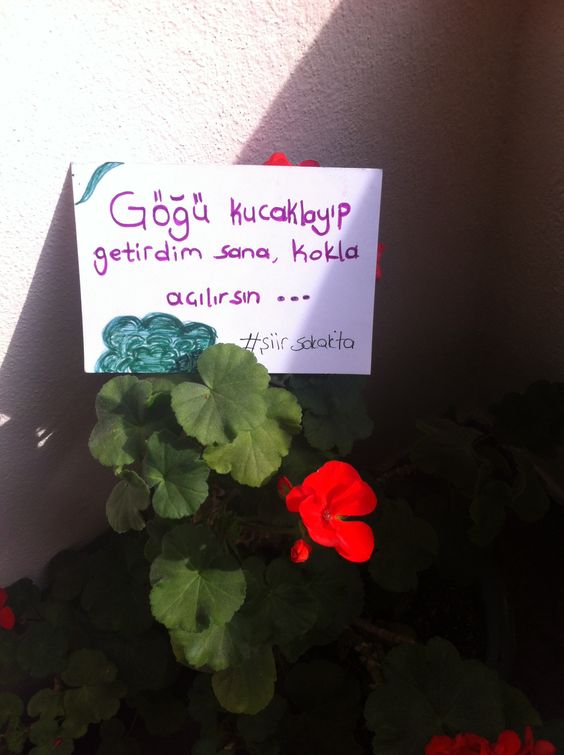 Göğü kucaklayıp
getirdim sana, kokla
açılırsın ...
#şiirsokakta